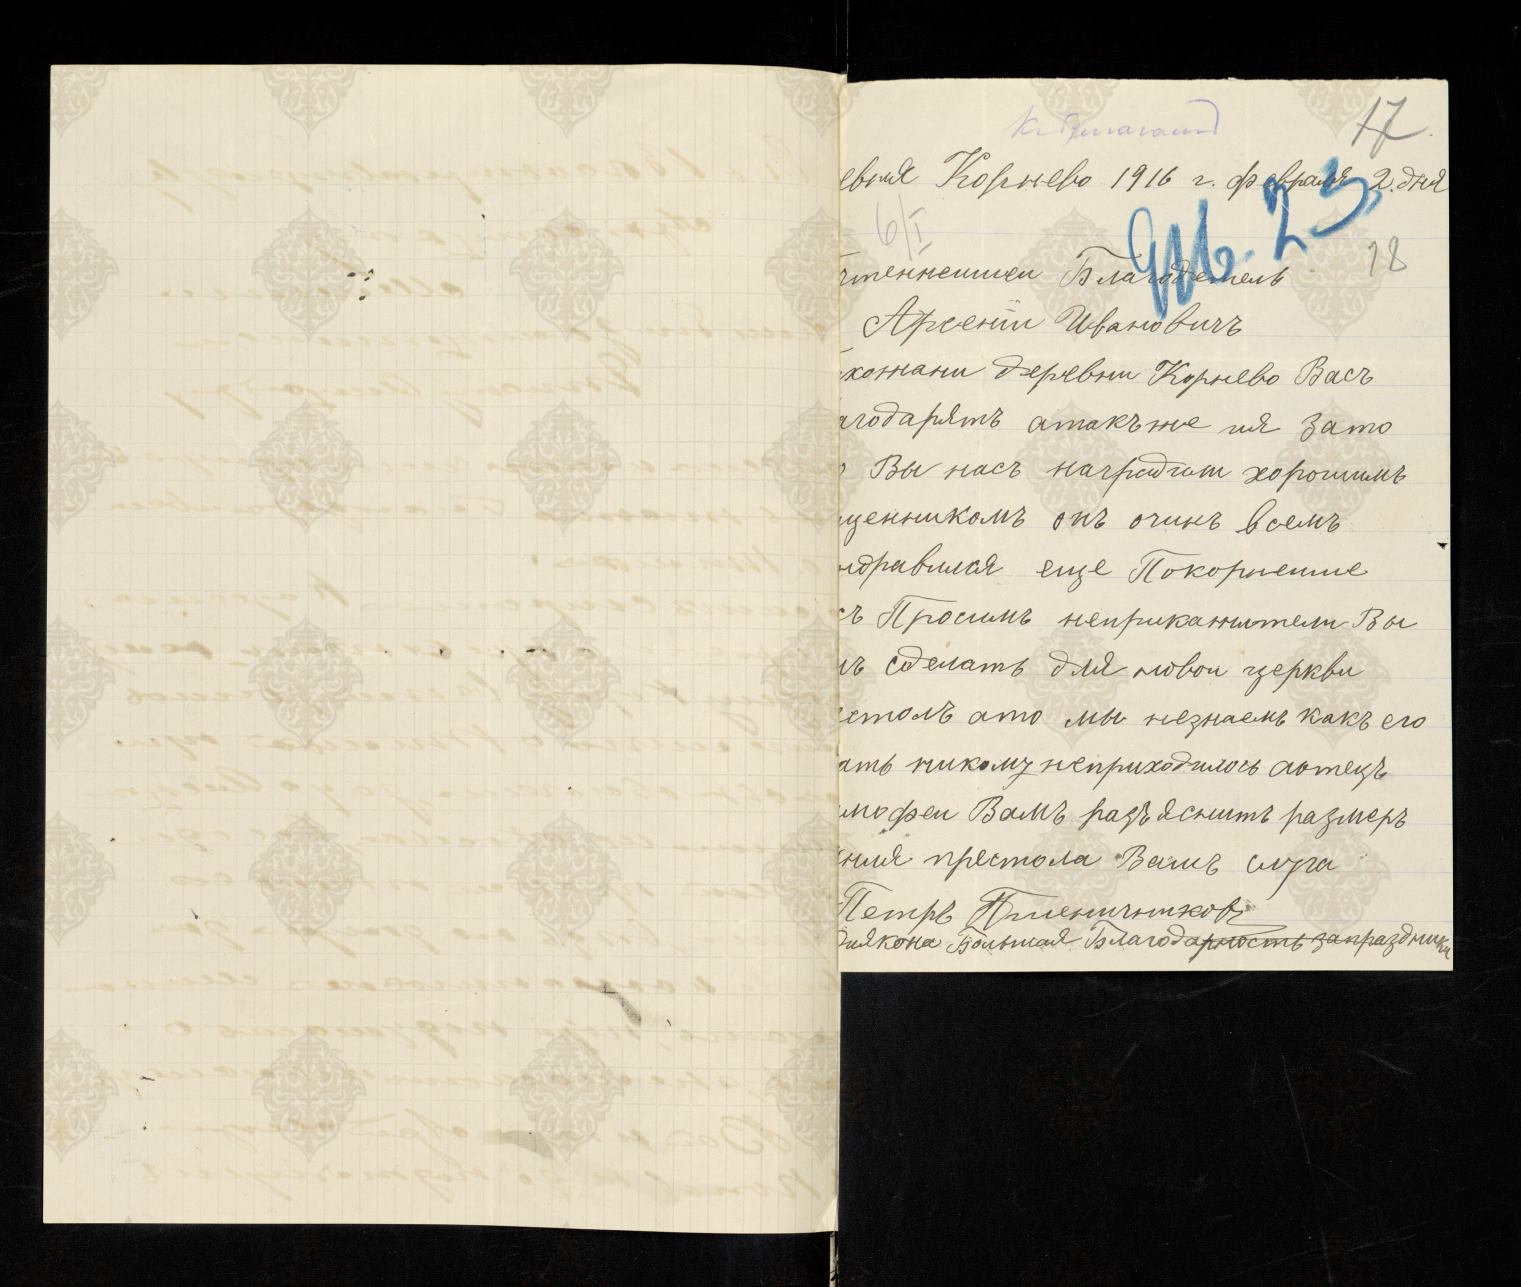 17
евня Корнево 1916 г. февраля 2. дня
6/I
18
чтеннешиеи Благодетель
Арсеній Ивановичъ
хожани деревни Корнево Васъ
агодарятъ атакъже ия Зато
Вы насъ наградили хорошимъ
щенникомъ онъ очинъ всемъ
ндравился еще Покорнеише
съ Просимъ неприкажители Вы
мъ сделать для новои церкви
столъ ато мы незнаемъ какъ его
ать никому неприходилось аотецъ
имофеи Вамъ разъяснитъ размеръ
ния престола Вашъ слуга
Петръ Пшеничниковъ
диякона Большая Благодарность запраздники